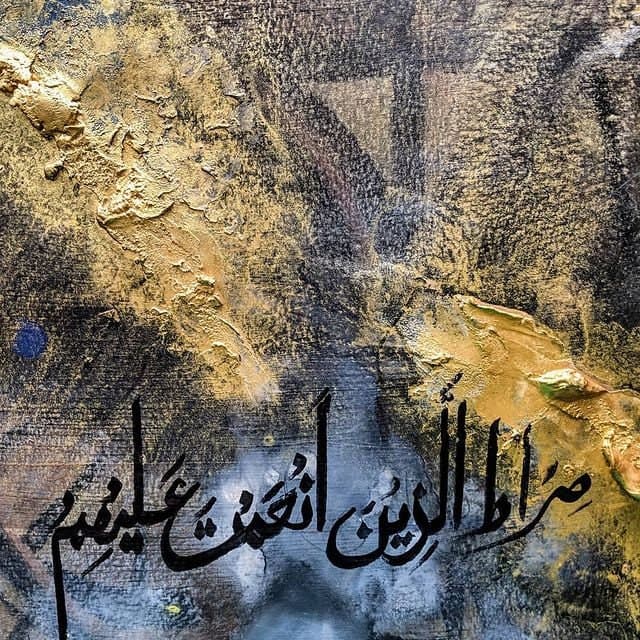 صِرَاطَ الَّذِينَ أَنْعَمْتَ عَلَيْهِمْ